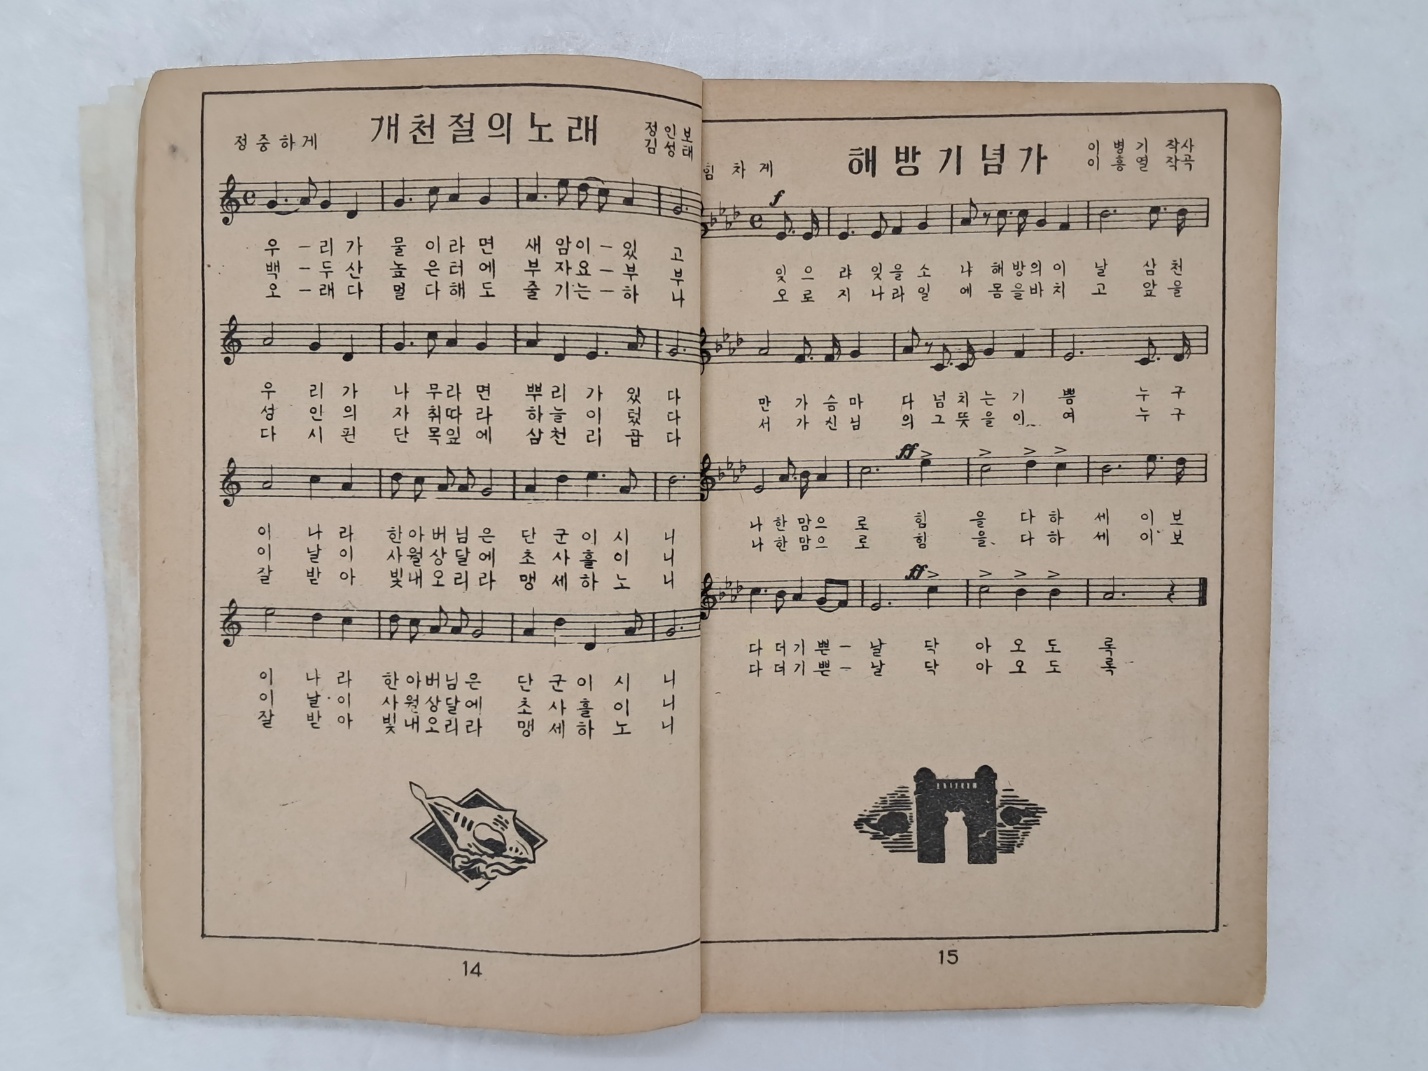 개천절의노래
정중하게
정인보
김성태
우 - 리 가 물 이 라 면 새 암 이 - 있 고
백 - 두 산 높 은 터 에 부 자 요 - 부 부
오 - 래 다 멀 다 해 도 줄 기 는 - 하 나
우 리 가 나 무 라 면 뿌 리 가 있 다
성 인 의 자 취 따 라 하 늘 이 텄 다
다 시 퓐 단 목 잎 에 삼 천 리 곱 다
이 나 라 한 아 버 님 은 단 군 이 시 니
이 날 이 사 월 상 달 에 초 사 흘 이 니
잘 받 아 빛 내 오 리 라 맹 세 하 노 니
이 나 라 한 아 버 님 은 단 군 이 시 니
이 날 이 사 원 상 달 에 초 사 흘 이 니
잘 받 아 빛 내 오 리 라 맹 세 하 노 니
14
해방기념가
힘차게
이병기 작사
이흥열 작곡
f
잊 으 랴 잊 을 소 냐 해 방 의 이 날 삼 천
오 로 지 나 라 일 에 몸 을 바 치 고 앞 을
만 가 슴 마 다 넘 치 는 기 쁨 누 구
서 가 신 님 의 그 뜻 을 이 여 누 구
ff
나 한 맘 으 로 힘 을 다 하 세 이 보
나 한 맘 으 로 힘 을 다 하 세 이 보
ff
다 더 기 쁜 - 날 닥 아 오 도 록
다 더 기 쁜 - 날 닥 아 오 도 록
15